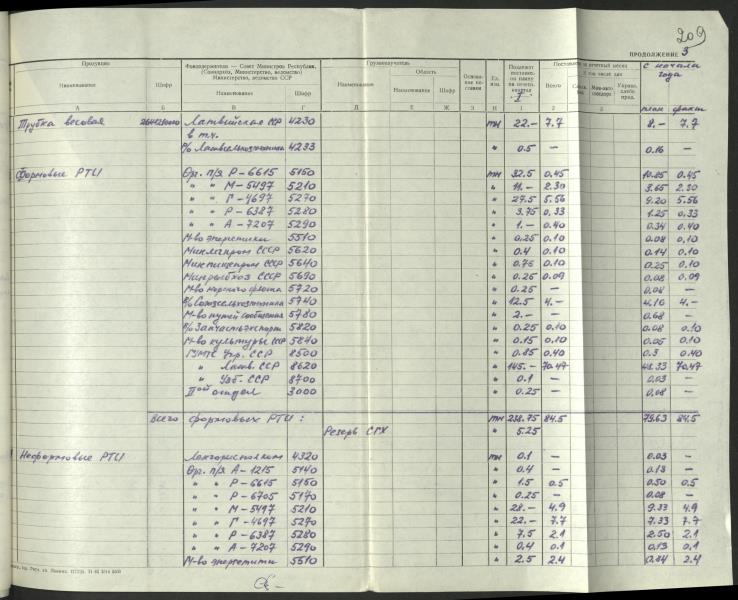 209
ПРОДОЛЖЕНИЕ 3
Продукция
Наименование
Шифр
Фондодержатели — Совет Министров Республики, (Совнархоз, Министерство, ведомство) Министерство, ведомство ССР
Наименование
Шифр
Грузополучатель
Наименование
Область
Наименование
Шифр
Ед. изм.
Всего
с начала года
план факт
А Б В Г Д Е Ж З И 1 2 3
Трубка весовая Латвийская ССР 4230 тн 22.– 7.7 8.– 7.7
в т.ч.
в/о Латвсельхозтехника 4233 " 0.5 – 0.16 –
Формовые РТИ Орг. п/я Р-6615 5150 тн 32.5 0.45 10.85 0.45
" " М-5497 5210 " 11.– 2.30 3.65 2.30
" " Г-4697 5270 " 27.5 5.56 9.20 5.56
" " Р-6387 5280 " 3.75 0.33 1.25 0.33
" " А-7207 5290 " 1.– 0.40 0.34 0.40
М-во энергетики 5510 " 0.25 0.10 0.08 0.10
Минлегпром СССР 5620 " 0.4 0.10 0.14 0.10
Минпищепром СССР 5640 " 0.75 0.10 0.25 0.10
Минрыбхоз СССР 5690 " 0.25 0.09 0.08 0.09
М-во морского флота 5720 " 0.25 – 0.08 –
в/о Союзсельхозтехника 5740 " 12.5 4.– 4.16 4.–
М-во путей сообщения 5780 " 2.– – 0.68 –
в/о Запчастьэкспорт 5820 " 0.25 0.10 0.08 0.10
М-во культуры СССР 5840 " 0.15 0.10 0.05 0.10
ГУМТС Укр. ССР 8500 " 0.85 0.40 0.3 0.40
" Латв. ССР 8620 " 145.– 70.47 48.33 70.47
" Узб. ССР 8700 " 0.1 – 0.03 –
II ой отдел 3000 " 0.25 – 0.08 –
Всего формовых РТИ: тн 238.75 84.5 79.63 84.5
Резерв СГХ " 5.25
Неформовые РТИ Ленгорисполком 4320 тн 0.1 – 0.03 –
Орг. п/я А-1215 5140 " 0.4 – 0.13 –
" " Р-6615 5150 " 1.5 0.5 0.50 0.5
" " Р-6705 5170 " 0.25 – 0.08 –
" " М-5497 5210 " 28.– 4.9 9.33 4.9
" " Г-4697 5270 " 22.– 7.7 7.33 7.7
" " Р-6387 5280 " 7.5 2.1 2.50 2.1
" " А-7207 5290 " 0.4 0.1 0.13 0.1
М-во энергетики 5510 " 2.5 2.4 0.84 2.4